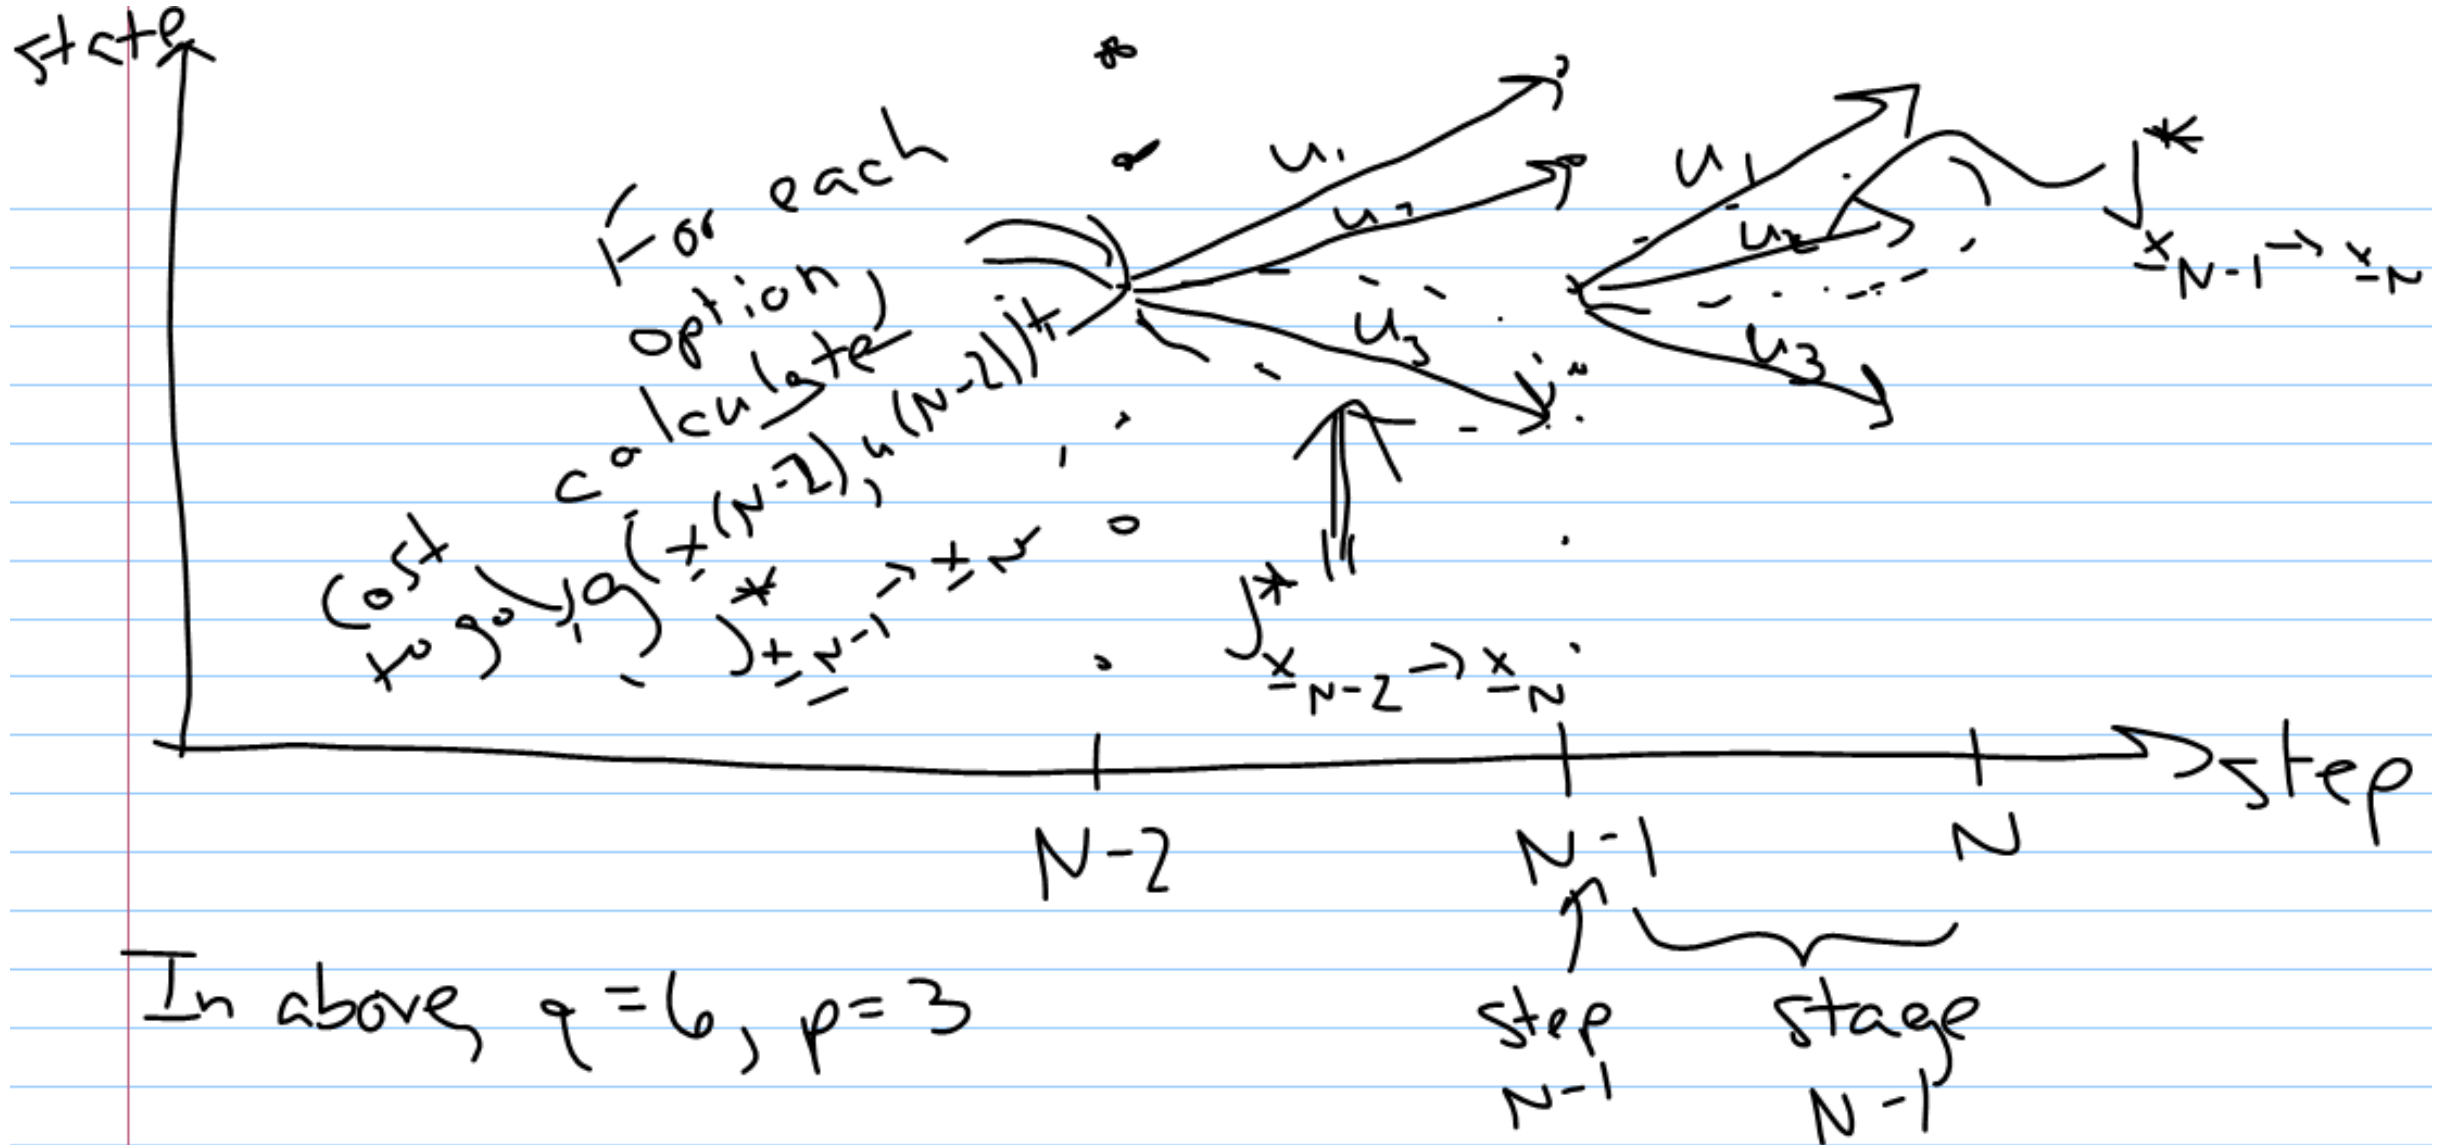 state
For each
option,
calculate
Cost
to go, g(x(N-2), u(N-2))+
J*x N-1 → x N
u1
u2
u3
J*
x N-2 → x N
u1
u2
u3
J*
x N-1 → x N
step
N-2
N-1
N
step
N-1
stage
N-1
In above, q=6, p=3